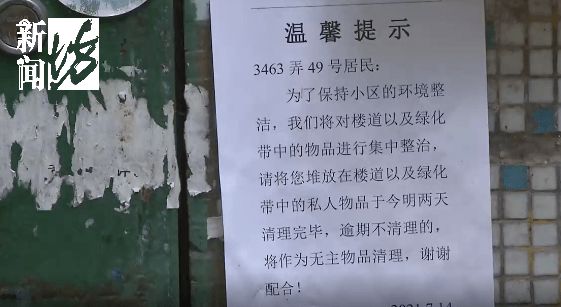 新闻坊
温馨提示
3463弄49号居民：
为了保持小区的环境整
洁，我们将对楼道以及绿化
带中的物品进行集中整治，
请将您堆放在楼道以及绿化
带中的私人物品于今明两天
清理完毕，逾期不清理的，
将作为无主物品清理，谢谢
配合！